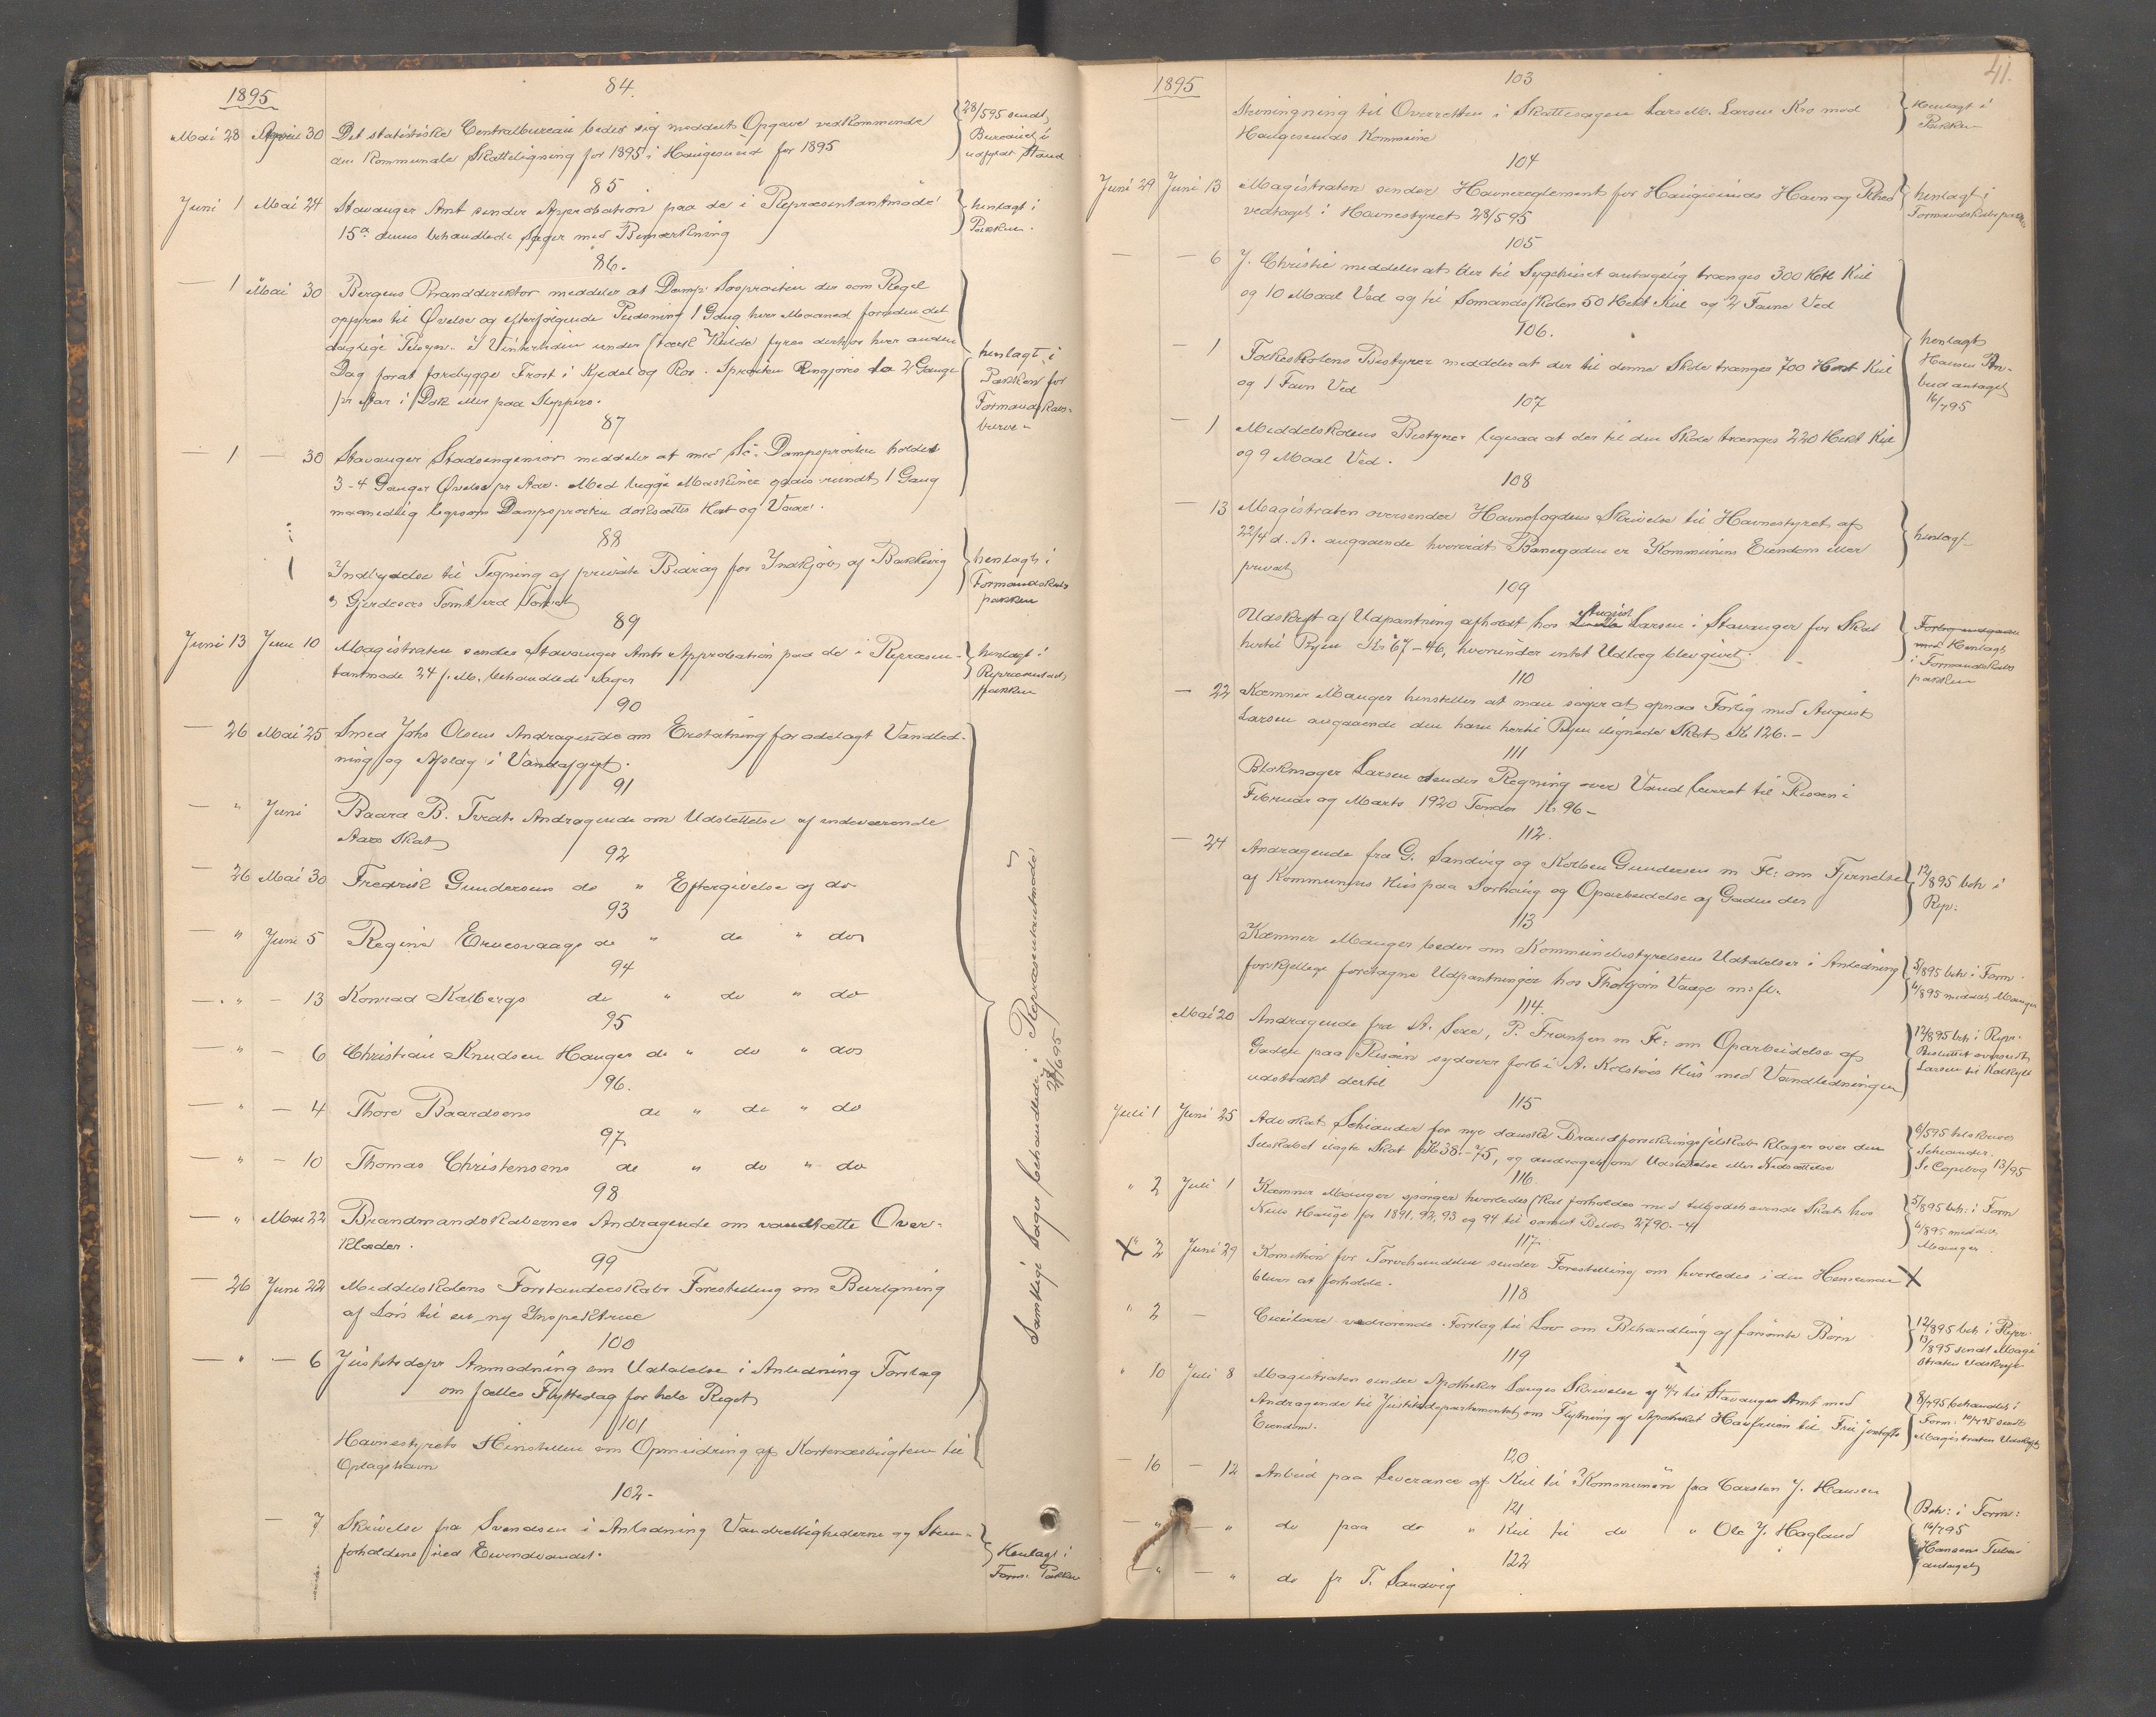 1895
84.
Mai 28 April 30 Det statistiske Centralbureau beder sig meddelt Opgave vedkommende
den kommunale Skatteligning for 1895 i Haugesund for 1895
28/5 95 sendt
Bureauet i
udfyldt Stand
85
Juni 1 Mai 24 Stavanger Amt sender Approbation paa de i Repræsentantmøde
15de dennes behandlede Sager med Bemærkning
henlagt i
Pakken.
86.
— 1 Mai 30 Bergens Branddirektør meddeler at Damp
opfyres til Øvelse og efterfølgende Pudsning 1 Gang hver Maaned foruden det
daglige Tilsyn. i Vintertiden under stærk Kulde fyres derhos hver anden
Dag forat forebygge Frost i Kjedel og Rør. Sprøiten Rengjøres to 2 Gange
pr Aar i Dok eller paa Slippen.
henlagt i
Pakken for
Formandskabs-
87
— 1 — 30 Stavanger Stadsingeniør meddeler at med Sø-Dampsprøiten holdes
3-4 Ganger Øvelse pr Aar. Med begge Maskiner gaaes rundt 1 Gang
maanedlig ligesom Dampsprøiten doksættes Høst og Vaar.
88
1 Indbydelse til Tegning af private Bidrag for Indkjøb af Bakkevig
& Gjerdesens Tomt ved Torvet
henlagt i
Formandskabs
pakken
89
Juni 13 Juni 10 Magistraten sender Stavanger Amts Approbation paa de i Repræsen-
tantmøde 24 f. M. behandlede Sager
henlagt i
Repræsentant
pakken
90
— 26 Mai 25 Smed Johs Olsens Andragende om Erstatning for ødelagt Vandled-
ning og Afslag i Vandafgift.
91
— " Juni Baard B. Tveits Andragende om Udsettelse af indeværende
Aars Skat
92
— 26 Mai 30 Fredrik Gundersens do " Eftergivelse af do
93
— " Juni 5 Regine do " do " do
94
— " — 13 Konrad Kalbergs do " do " do
95
— " — 6 Christian Knudsen Hauges do " do " do
96.
— " — 4 Thore Baardsens do " do " do
97
— " — 10 Thomas Christensens do " do " do
98
— " Mai 22 Brandmandskabernes Andragende om vandtætte Over-
klæder.
99
— 26 Juni 22 Middelskolens Forstanderskabs Forestilling om Bevilgning
af Løn til en ny Inspektrice
100
— " — 6 Justitsdeps Anmodning om Udtalelse i Anledning Forslag
om fælles Flyttedag for hele Riget
101
Havnestyrets Henstillen om Opmudring af Kortenæsbugten til
Oplagshavn
Samtlige Sager behandlede i Repræsentantmøde
28/6 95
102-
— 7 Skrivelse fra Svendsen i Anledning Vandrettighederne og
forholdene ved Eivindsvandet.
Henlagt i
Form. Pakken
41.
1895
103
Stevningning til Overretten i Skattesagen Lars M. Larsen Kro mod
Haugesunds Kommune
Henlagt i
Pakken
104
Juni 29 Juni 13 Magistraten sender Havnereglement for Haugesunds Havn og Rhed
vedtaget i Havnestyret 28/5 95
henlagt i
Formandskabspakken
105
— — 6 J. Christie meddeler at der til Sygehuset antagelig trænges 300 Hekt Kul
og 10 Maal Ved og til Sømandsskolen 50 Hekt Kul og 2 Favne Ved
106.
— 1 Folkeskolens Bestyrer meddeler at der til denne Skole trænges 700 Hekt Kul
og 1 Favn Ved
107
— 1 Middelskolens Bestyrer ligesaa at der til den Skole trænges 220 Hekt Kul
og 9 Maal Ved.
henlagt
Hansens An-
bud antaget
16/7 95
108
— 13 Magistraten oversender Havnefogdens Skrivelse til Havnestyret af
22/4 d. A. angaaende hvorvidt Banegaden er Kommunens Eiendom eller
privat
henlagt
109
Udskrift af Udpantning afholdt hos August Larsen i Stavanger for Skat
hertil Byen Kr 67-46, hvorunder intet Udlæg blev givet.
Henlagt
i Formandskabs
pakken
110
— 22 Kæmner Mauger henstiller at man søger at opnaa Forlig med August
Larsen angaaende den ham hertil Byen ilignede Skat Kr 126.-
111
Blokmager Larsen sender Regning over Vand leveret til Risøen i
Februar og Marts 1920 Tønder Kr 96-
112.
— 24 Andragende fra G. Sandvig og Kolben Gundersen m Fl: om Fjernelse
af Kommunens Hus paa Sørhaug og Oparbeidelse af Gaden der
12/8 95 beh i
Rep.
113
Kæmner Mauger beder om Kommunebestyrelsens Udtalelser i Anledning
forskjellige foretagne Udpantninger hos Thorbjørn Vaage m. fl.
5/8 95 beh i Form.
6/8 95 meddelt Mauger
114.
Mai 20 Andragende fra A. Sexe, P. Frantzen m Fl: om Oparbeidelse af
Gaden paa Risøen sydover forbi A. Kolstøs Hus med Vandledningen
udstrakt dertil
12/8 95 beh i Repr.
Besluttet oversendt
Larsen til Kalkyle
115
Juli 1 Juni 25 Advokat Schiander for nye danske Brandforsikringsselskab klager over den
Selskabet ilagte Skat Kr 38.-75, og andrager om Udsettelse eller Nedsættelse
tilskrevet
Schiander.
Se Copibog 13/95
116.
" 2 Juli 1 Kæmner Mauger spørger hvorledes skal forholdes med tilgodehavende Skat hos
Niels Hauge for 1891, 92, 93 og 94 til samlet Beløb 2790.-41
5/8 95 beh. i Form
6/8 95 meddelt
Mauger
117
X " 2 Juni 29 Komiteen for Torvehandelen sender Forestilling om hvorledes i den Henseende X
bliver at forholde.
118
" 2 — Circulære vedrørende Forslag til Lov om Behandling af forsømte Børn
12/8 95 beh i Repr.
13/8 95 sendt Magi
straten Udskrift
119
" 10 Juli 8 Magistraten sender Apotheker Sanges Skrivelse af til Stavanger Amt med
Andragende til Justitsdepartementet om Flytning af Apotheket Havfruen til Frii jordets
Eiendom.
8/7 95 behandlet i
Form. 10/7 95 sendt
Magistraten Udskrift
120
— 16 — 12 Anbud paa Leverance af Kul til Kommunen fra Carsten J. Hansen
121
— " — " do paa do " Kul til do " Ole J. Hagland
122
— " — " do fr T. Sandvig
Beh: i Form:
16/7 95
Hansens Tilbud
antaget